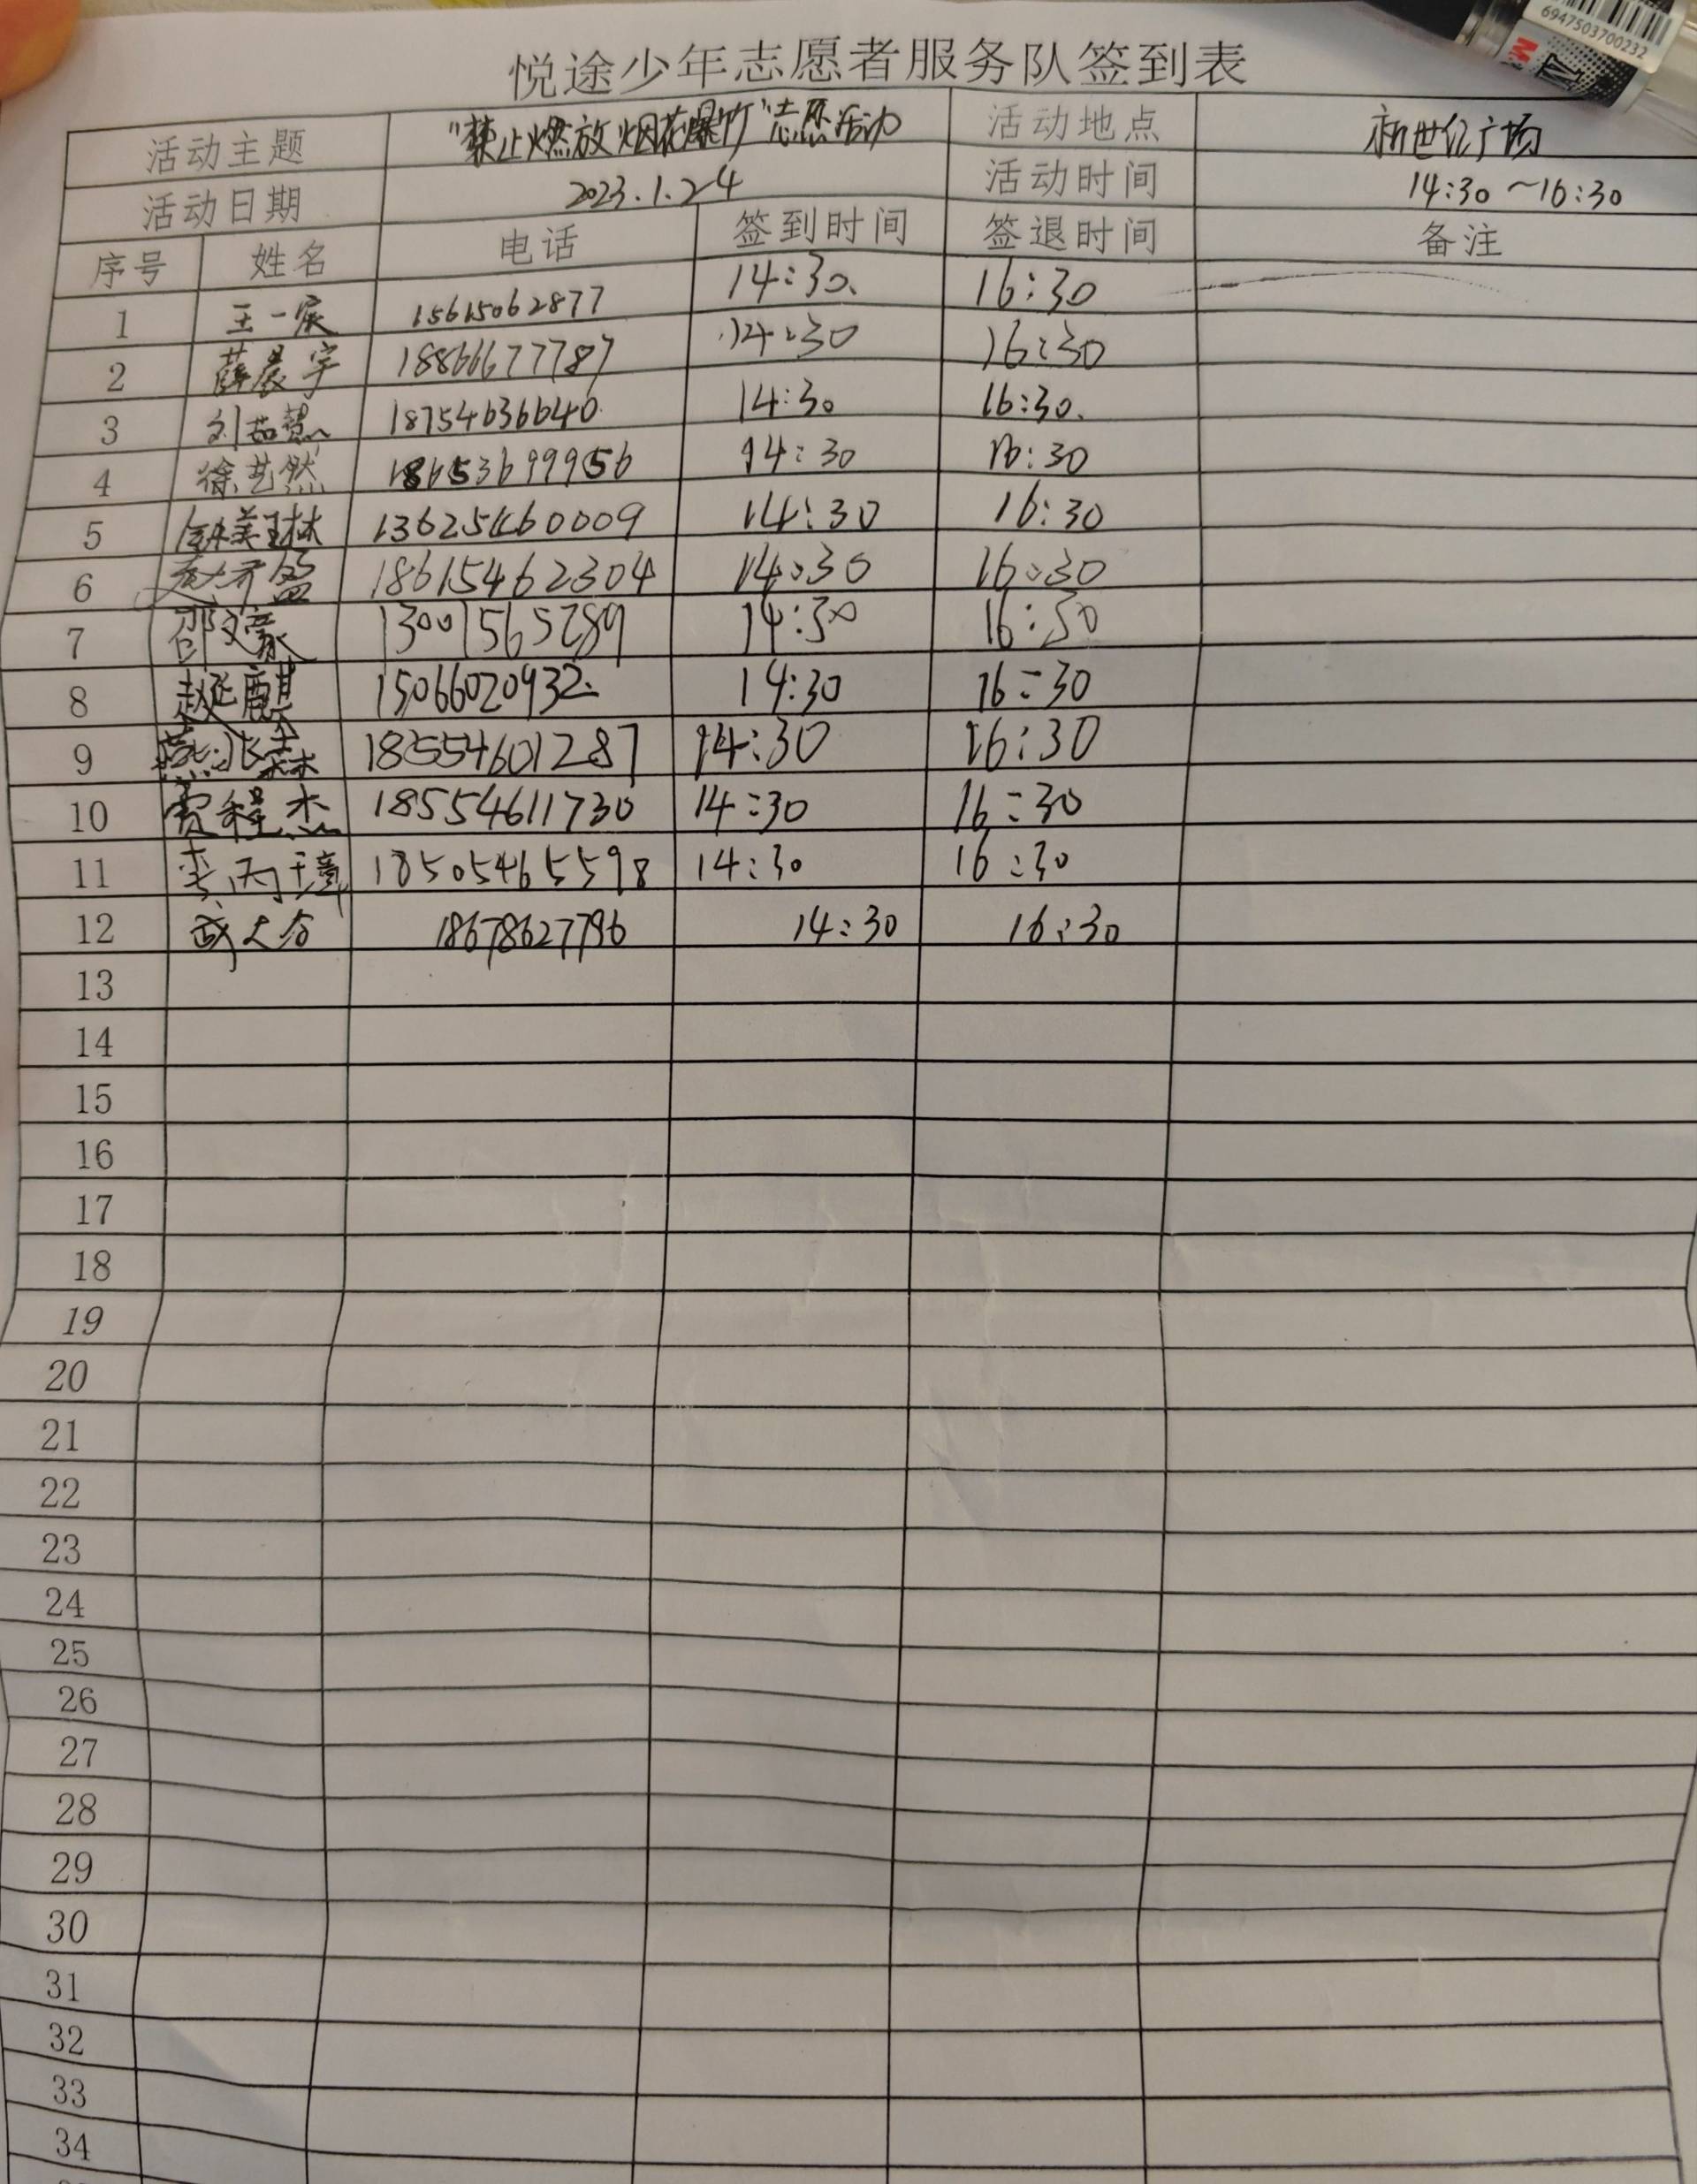 6947503700232
悦途少年志愿者服务队签到表
活动主题 "禁止燃放烟花爆竹"志愿活动 活动地点 新世纪广场
活动日期 2023.1.24 活动时间 14:30~16:30
序号 姓名 电话 签到时间 签退时间 备注
1 王一宸 15615062877 14:30 16:30
2 薛晨宇 18866677787 14:30 16:30
3 刘茹慧 18754636640 14:30 16:30
4 徐艺然 18653699956 14:30 16:30
5 美琳 13625460009 14:30 16:30
6 18615462304 14:30 16:30
7 邵文豪 13001565289 14:30 16:30
8 赵麒 15066020932 14:30 16:30
9 燕兆森 18554601287 14:30 16:30
10 贾程杰 18554611730 14:30 16:30
11 李丙璋 18505465598 14:30 16:30
12 18678627796 14:30 16:30
13
14
15
16
17
18
19
20
21
22
23
24
25
26
27
28
29
30
31
32
33
34